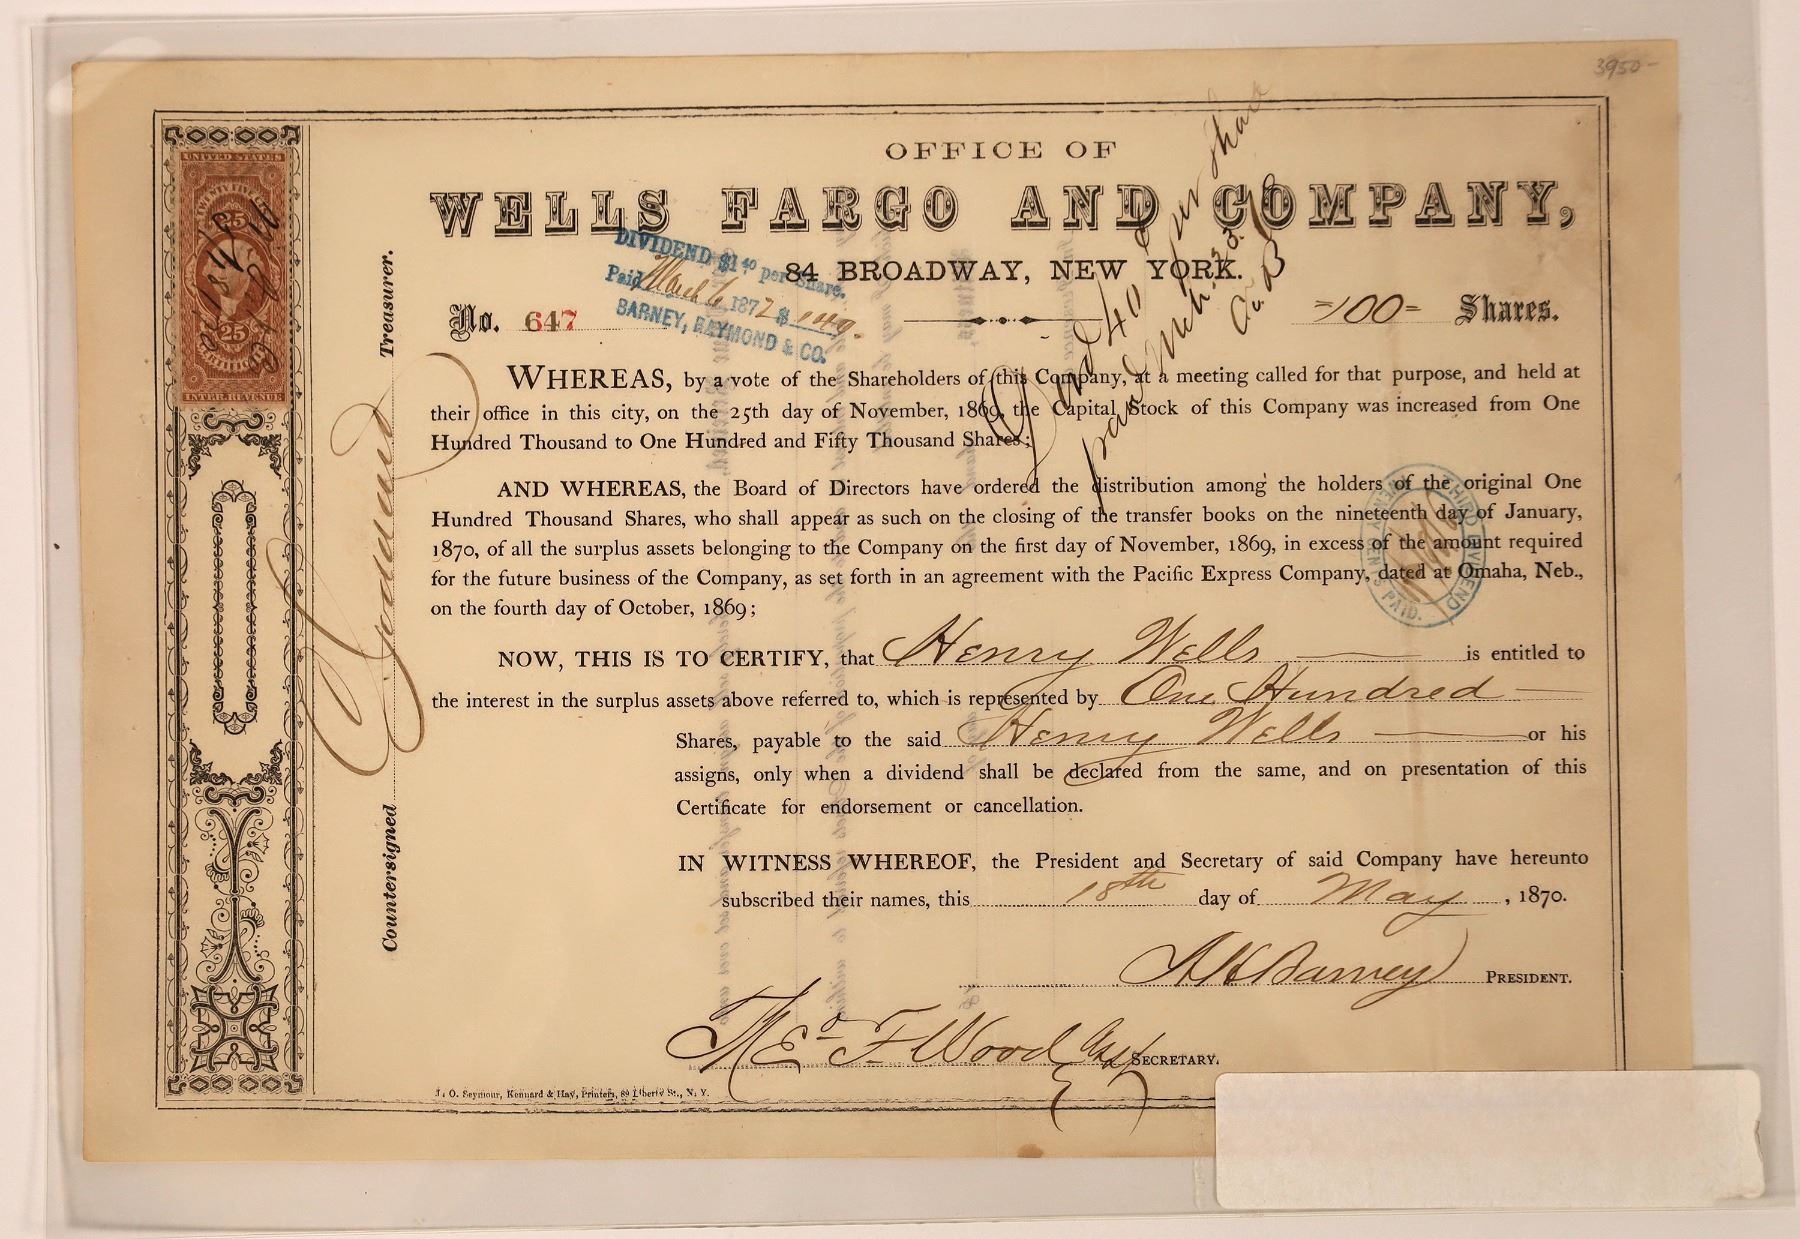 3950-
OFFICE OF
WELLS FARGO AND COMPANY,
84 BROADWAY, NEW YORK.
No. 647
=100= Shares.
DIVIDEND $1 40 per Share.
Paid March 6 1872 $ 140.
BARNEY, RAYMOND & CO.
per Share
paid Mch. 23.
UNITED STATES
TWENTY FIVE
25
25
CERTIFICATE
INTER. REVENUE
WHEREAS, by a vote of the Shareholders of this Company, at a meeting called for that purpose, and held at
their office in this city, on the 25th day of November, 1869, the Capital Stock of this Company was increased from One
Hundred Thousand to One Hundred and Fifty Thousand Shares;
AND WHEREAS, the Board of Directors have ordered the distribution among the holders of the original One
Hundred Thousand Shares, who shall appear as such on the closing of the transfer books on the nineteenth day of January,
1870, of all the surplus assets belonging to the Company on the first day of November, 1869, in excess of the amount required
for the future business of the Company, as set forth in an agreement with the Pacific Express Company, dated at Omaha, Neb.,
on the fourth day of October, 1869;
THIRD DIVIDEND
PAID.
NOW, THIS IS TO CERTIFY, that Henry Wells is entitled to
the interest in the surplus assets above referred to, which is represented by One Hundred
Shares, payable to the said Henry Wells or his
assigns, only when a dividend shall be declared from the same, and on presentation of this
Certificate for endorsement or cancellation.
IN WITNESS WHEREOF, the President and Secretary of said Company have hereunto
subscribed their names, this 18th day of May, 1870.
A H Barney PRESIDENT.
Theo F Wood Asst SECRETARY.
Countersigned Treasurer.
J. O. Seymour, Kennard & Hay, Printers, 89 Liberty St., N. Y.